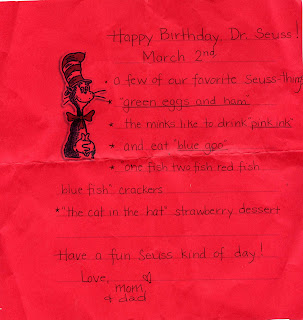 Happy Birthday, Dr. Seuss!
March 2nd
• a few of our favorite Seuss-Things
• "green eggs and ham"
• the minks like to drink "pink ink"
• and eat "blue goo"
• one fish two fish red fish
blue fish" crackers
*"the cat in the hat" strawberry dessert
Have a fun Seuss kind of day!
Love,
mom
& dad